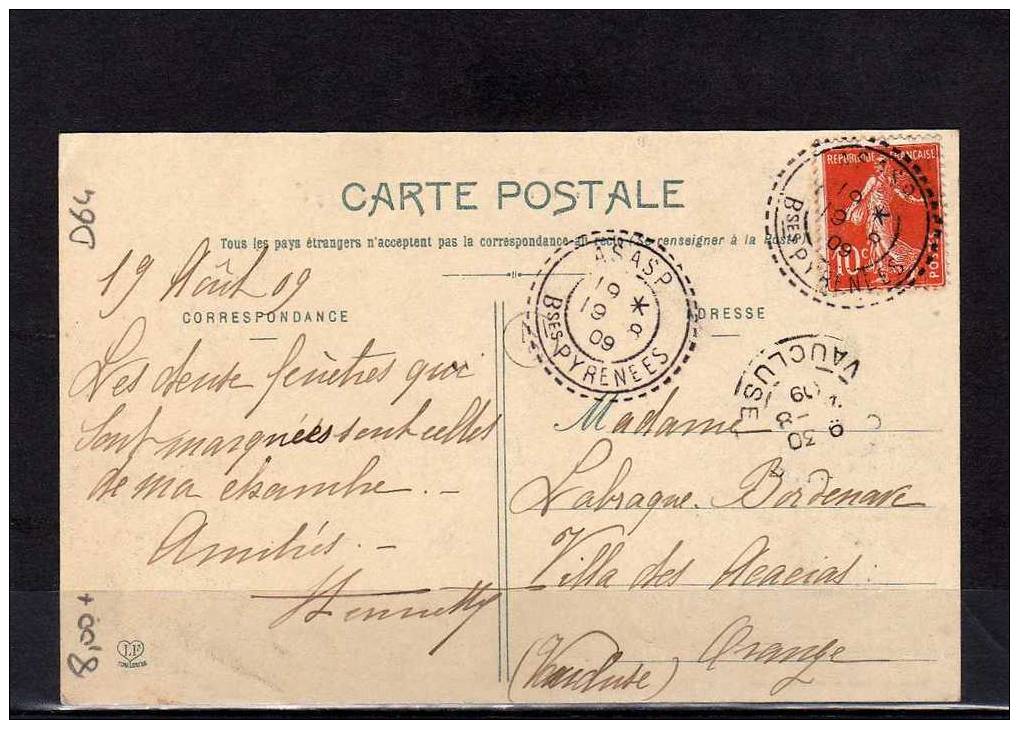 D64
CARTE POSTALE
Tous les pays étrangers n'acceptent pas la correspondance au recto (Se renseigner à la Poste
19 Août 09
CORRESPONDANCE
Les deux fenêtres qui
sont marquées sont celles
de ma chambre. –
Amitiés. –
8,00+
LF
ADRESSE
Madame
Labraque Bordenave
Villa des Acacias
Orange
(Vaucluse)
ASASP
19
19 *
09 8
BSES PYRENEES
REPUBLIQUE FRANÇAISE
10c
POS
ASASP
19
19 *
09 8
BSES PYRENEES
VAUCLUSE
9 30
-8
09